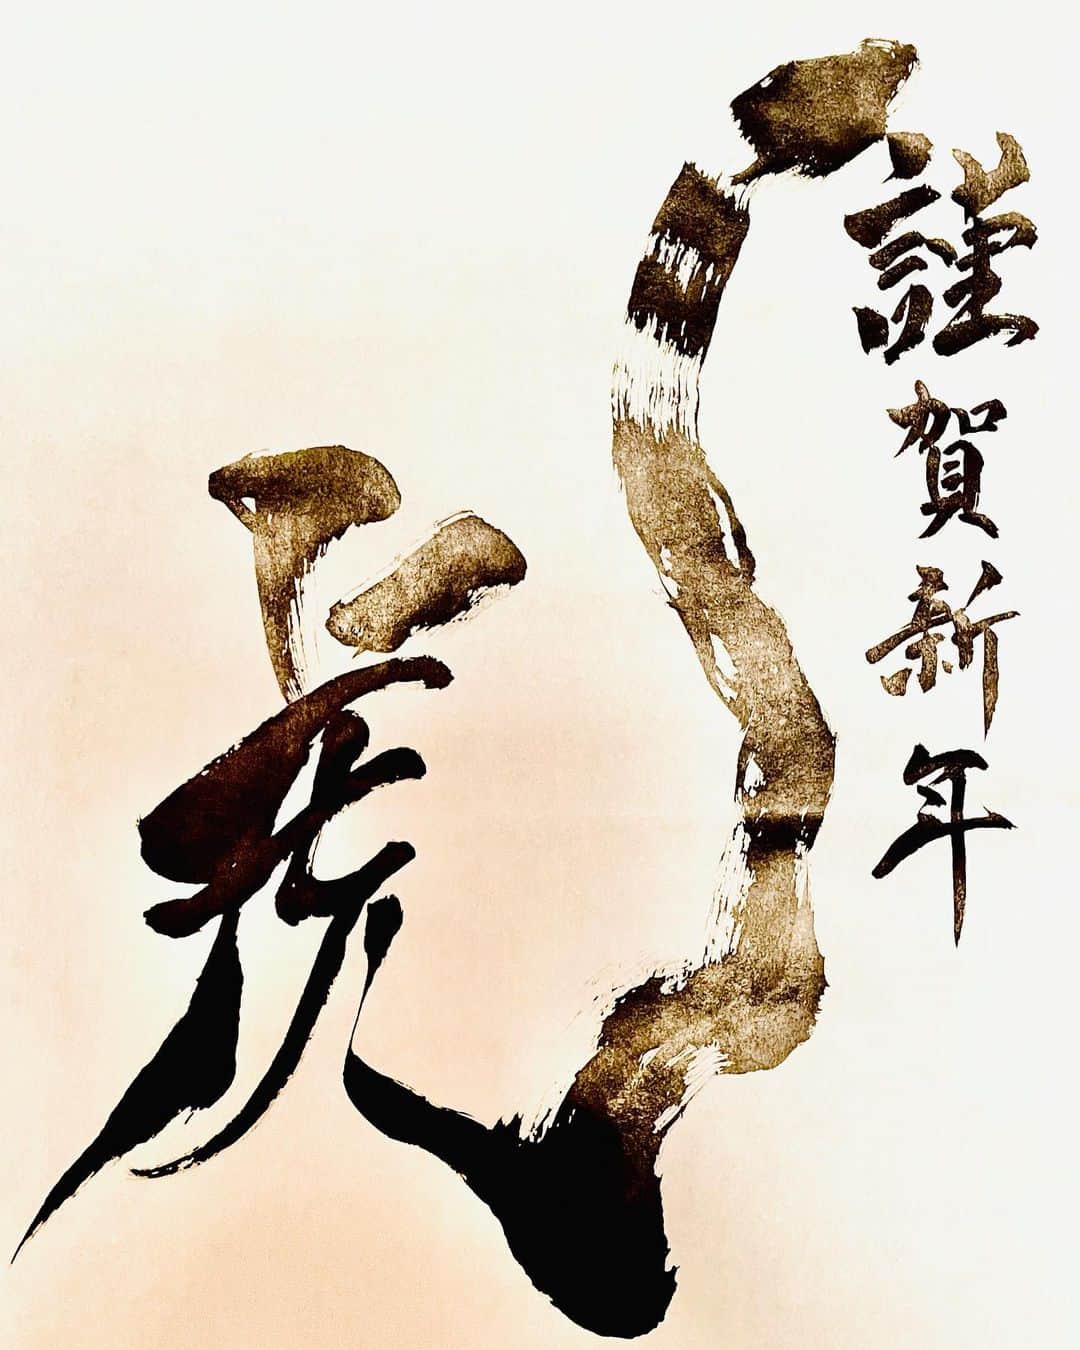 謹賀新年
虎